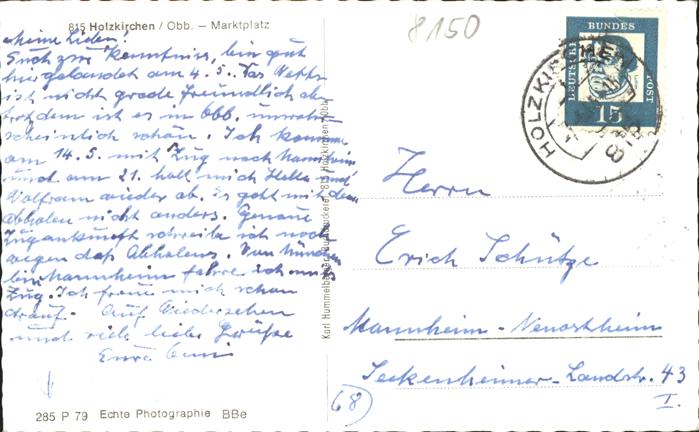 815 Holzkirchen / Obb. — Marktplatz
8150
Meine Lieben!
Euch zur Kenntniss, bin gut
hier gelandet am 4.5. Das Wetter
ist nicht grade freundlich aber
trotzdem ist es in Obb. unwahr
scheinlich schön. Ich komme
am 14.5. mit Zug nach Mannheim
und am 21. holt mich Hella und
Wolfram wieder ab. Es geht mit dem
abholen nicht anders. Genaue
Zugankunft schreibe ich noch
wegen des Abholens. Von München
bis Mannheim fahre ich mit
Zug. Ich freue mich schon
drauf. Auf Wiedersehen
und viele liebe Grüße
Eure
285 P 79 Echte Photographie BBe
Karl Hummelberger, Buchdruckerei, 815 Holzkirchen/Obb.
DEUTSCHE BUNDESPOST
15
HOLZKIRCHEN
Herrn
Erich Schütze
Mannheim-Neuostheim
Seckenheimer-Landstr. 43
I.
68